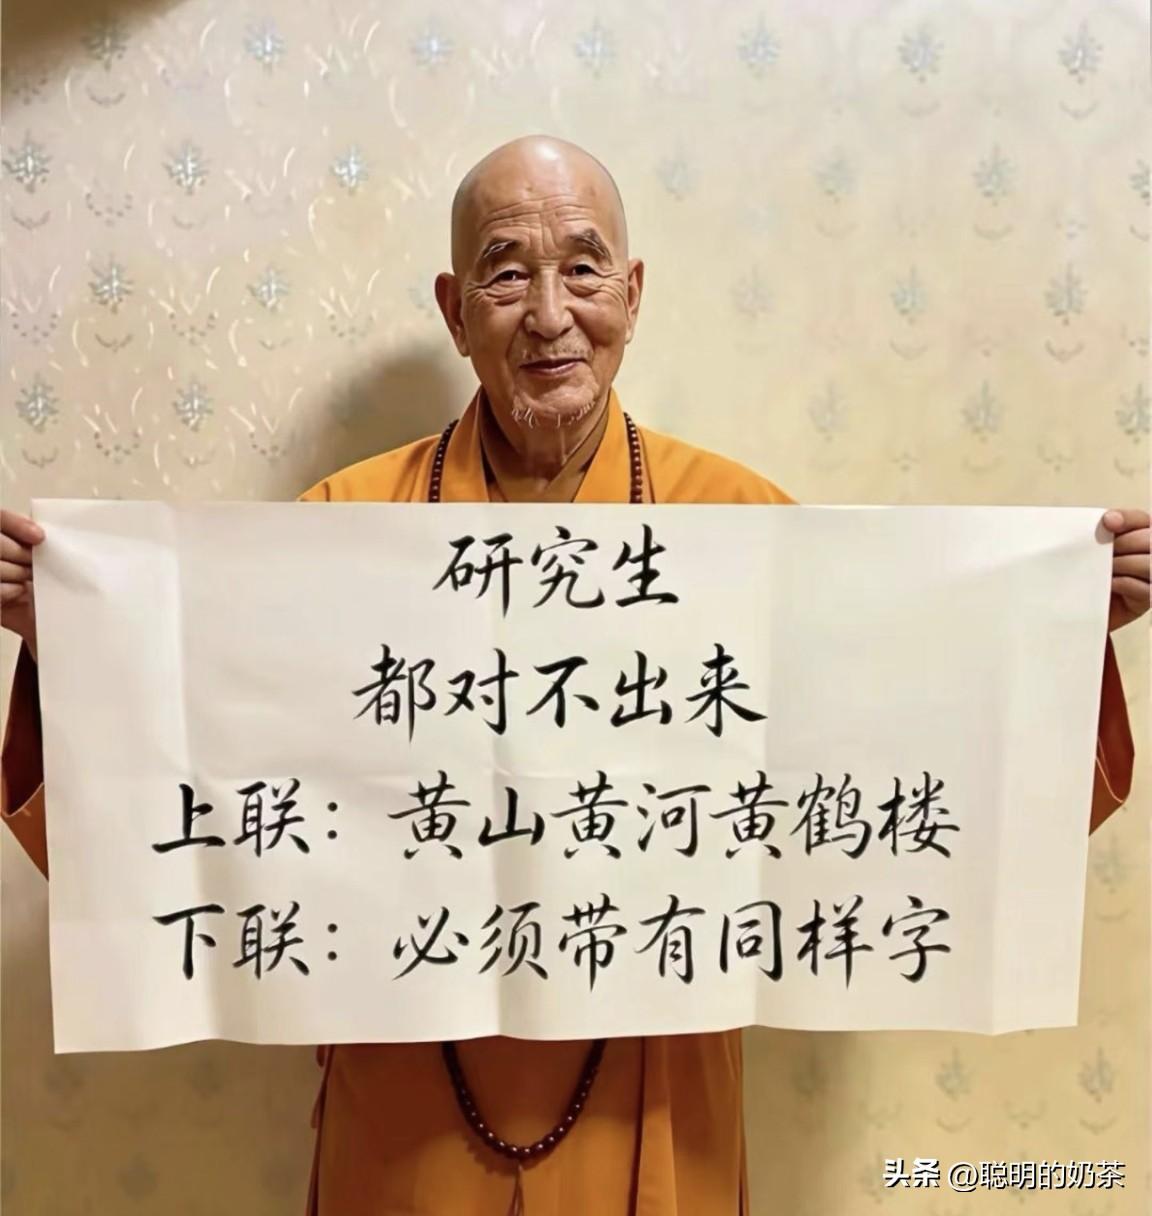 研究生
都对不出来
上联：黄山黄河黄鹤楼
下联：必须带有同样字
头条 @聪明的奶茶